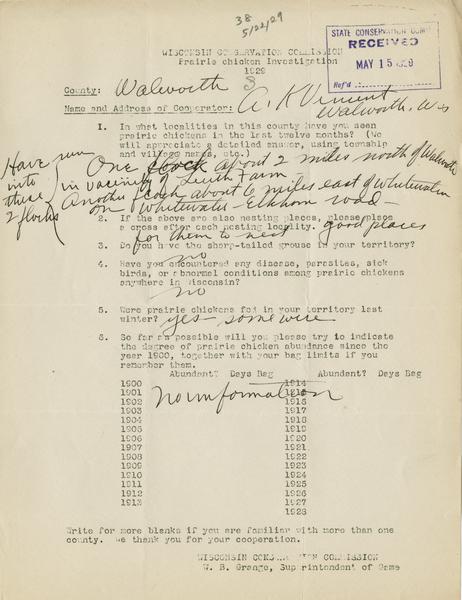 38
5/22/29
STATE CONSERVATION COMM
RECEIVED
MAY 15 1929
Ref'd
WISCONSIN CONSERVATION COMMISSION
Prairie Chicken Investigation
1929
County: Walworth
Name and Address of Cooperator: A. K Vincent
Walworth, Wis
1. In what localities in this county have you seen
prairie chickens in the last twelve months? (We
will appreciate a detailed answer, using township
and village names, etc.)
Have run
into
these
2 flocks
One flock about 2 miles north of Walworth
in vacinity of Leith Farm
Another flock about 6 miles east of Whitewater
on Whitewater - Elkhorn road -
2. If the above are also nesting places, please place
a cross after each nesting locality. good places
for them to nest
3. Do you have the sharp-tailed grouse in your territory?
no
4. Have you encountered any disease, parasites, sick
birds, or abnormal conditions among prairie chickens
anywhere in Wisconsin?
no
5. Were prairie chickens fed in your territory last
winter? yes - some were
6. So far as possible will you please try to indicate
the degree of prairie chicken abundance since the
year 1900, together with your bag limits if you
remember them.
Abundant? Days Bag Abundant? Days Bag
1900 1914
1901 1915
no information
1902 1916
1903 1917
1904 1918
1905 1919
1906 1920
1907 1921
1908 1922
1909 1923
1910 1924
1911 1925
1912 1926
1913 1927
1928
Write for more blanks if you are familiar with more than one
county. We thank you for your cooperation.
WISCONSIN CONSERVATION COMMISSION
W. B. Grange, Superintendent of Game